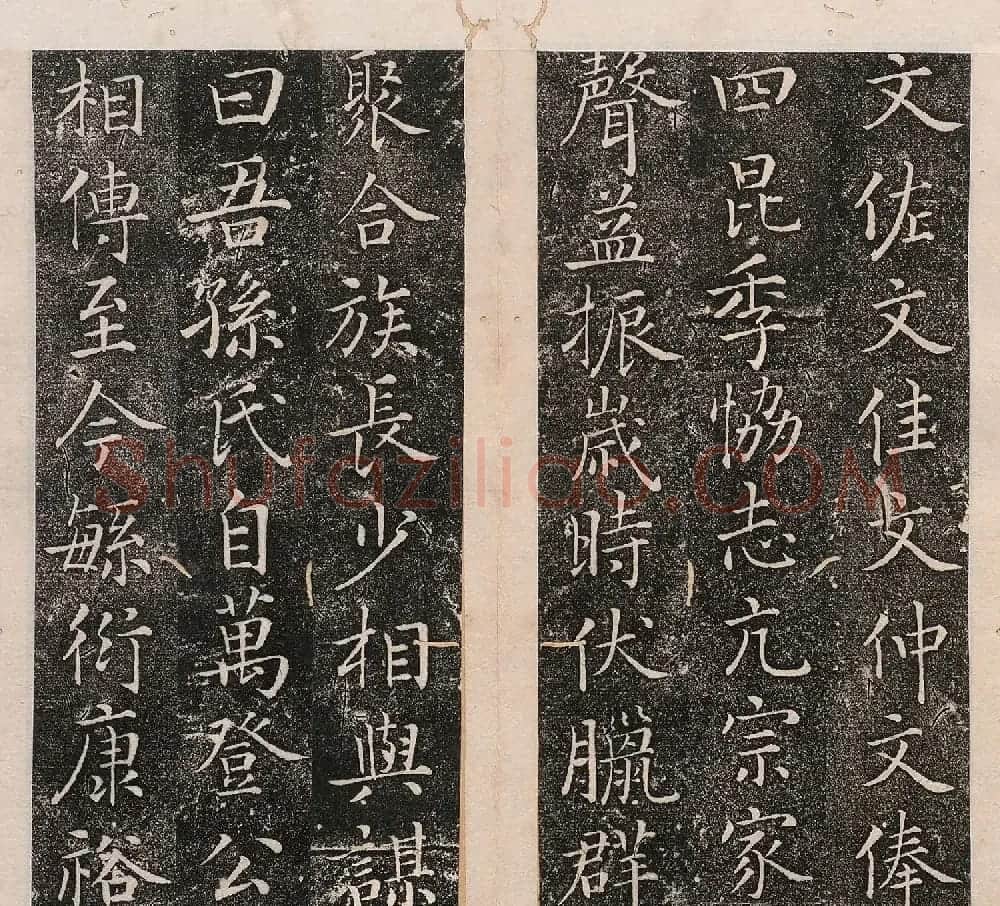 文佐文隹文仲文俸
四昆季協志亢宗家
聲益振歲時伏臘群
聚合族長少相與謀
曰吾孫氏自萬登公
相傳至今緐衍康裕
Shufaziliao.COM